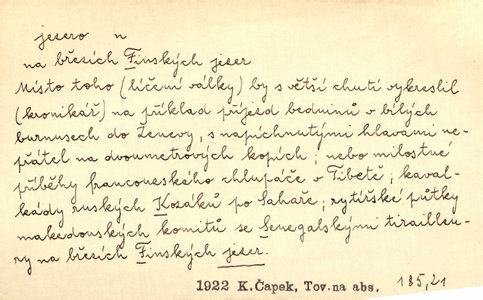 jezero n
na březích Finských jezer
Místo toho (líčení války) by s větší chutí vykreslil
(kronikář) na příklad příjezd beduinů v bílých
burnusech do Ženevy, s napíchnutými hlavami ne-
přátel na dvoumetrových kopích; nebo milostné
příběhy francouzského chlupáče v Tibetě; kaval-
kády ruských Kozáků po Sahaře; rytířské půtky
makedonských komitů se Senegalskými tirailleu-
ry na březích Finských jezer.
1922 K.Čapek, Tov.na abs. 185,21